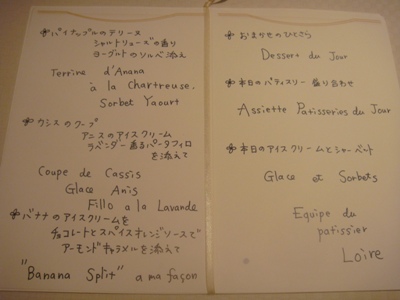 パイナップルのテリーヌ
シャルトリューズの香り
ヨーグルトのソルベ添え
Terrine d'Anana
à la Chartreuse.
Sorbet Yaourt
カシスのクープ
アニスのアイスクリーム
ラベンダー香るパータフィロ
を添えて
Coupe de Cassis
Glace Anis
Fillo a la Lavande
バナナのアイスクリームを
チョコレートとスパイスオレンジソースで
アーモンドキャラメルを添えて
"Banana Split" a ma façon
おまかせのひとさら
Dessert du Jour
本日のパティスリー 盛り合わせ
Assiette Patisseries du Jour
本日のアイスクリームとシャーベット
Glace et Sorbets
Equipe du
patissier
Loire